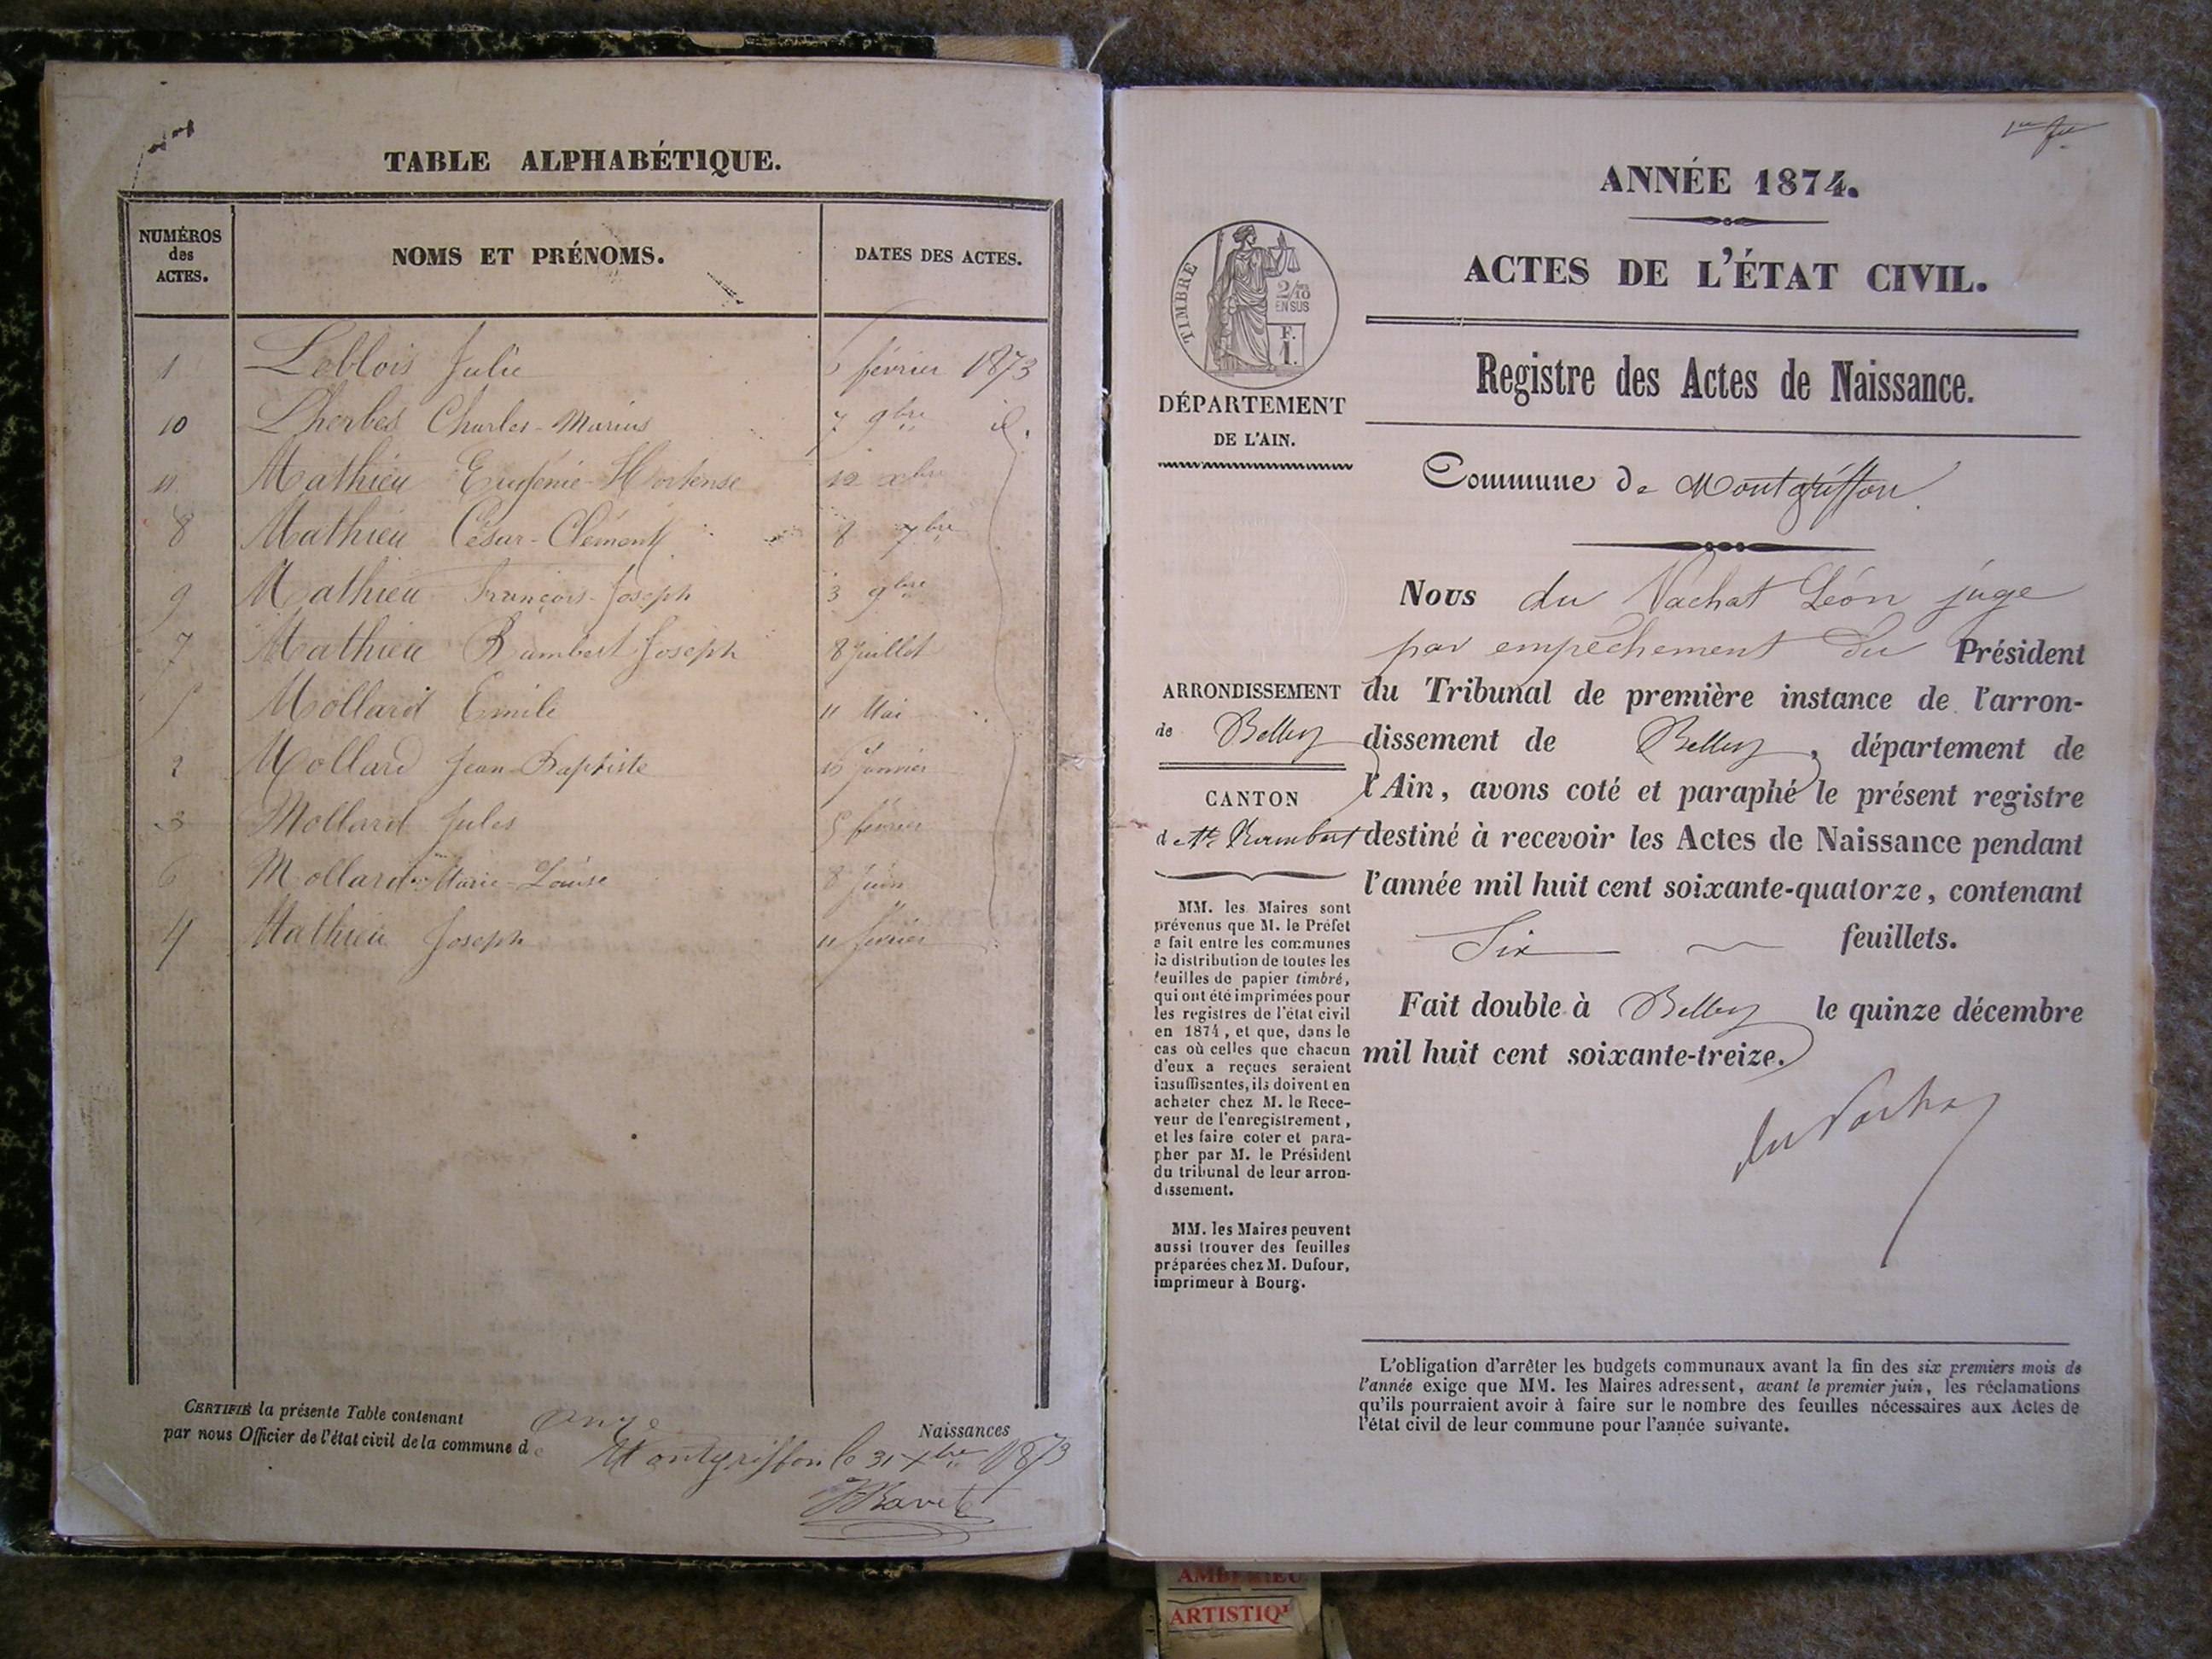 TABLE ALPHABÉTIQUE.
NUMÉROS des ACTES. NOMS ET PRÉNOMS. DATES DES ACTES.
1 Leblois Julie 6 février 1873
10 Lherbes Charles-Marius 7 9bre id.
11 Mathieu Eugénie-Hortense 12 xbre
8 Mathieu César-Clément 8 7bre
9 Mathieu François-Joseph 3 9bre
7 Mathieu Rambert Joseph 8 Juillet
5 Mollard Emile 11 Mai
2 Mollard Jean-Baptiste 16 Janvier
3 Mollard Jules 5 février
6 Mollard Marie-Louise 8 Juin
4 Mathieu Joseph 11 février
CERTIFIÉ la présente Table contenant onze Naissances
par nous Officier de l'état civil de la commune de
Montgriffon le 31 Xbre 1873
ANNÉE 1874.
ACTES DE L'ÉTAT CIVIL.
Registre des Actes de Naissance.
TIMBRE
2/10
EN SUS
F.
1.
DÉPARTEMENT
DE L'AIN.
Commune de Montgriffon
Nous du Vachat Léon juge
par empêchement du Président
du Tribunal de première instance de l'arron-
dissement de Belley, département de
l'Ain, avons coté et paraphé le présent registre
destiné à recevoir les Actes de Naissance pendant
l'année mil huit cent soixante-quatorze, contenant
Six feuillets.
Fait double à Belley le quinze décembre
mil huit cent soixante-treize.
du Vachat
ARRONDISSEMENT
de Belley
CANTON
de St Rambert
MM. les Maires sont
prévenus que M. le Préfet
a fait entre les communes
la distribution de toutes les
feuilles de papier timbré,
qui ont été imprimées pour
les registres de l'état civil
en 1874, et que, dans le
cas où celles que chacun
d'eux a reçues seraient
insuffisantes, ils doivent en
acheter chez M. le Rece-
veur de l'enregistrement,
et les faire coter et para-
pher par M. le Président
du tribunal de leur arron-
dissement.
MM. les Maires peuvent
aussi trouver des feuilles
préparées chez M. Dufour,
imprimeur à Bourg.
L'obligation d'arrêter les budgets communaux avant la fin des six premiers mois de
l'année exige que MM. les Maires adressent, avant le premier juin, les réclamations
qu'ils pourraient avoir à faire sur le nombre des feuilles nécessaires aux Actes de
l'état civil de leur commune pour l'année suivante.